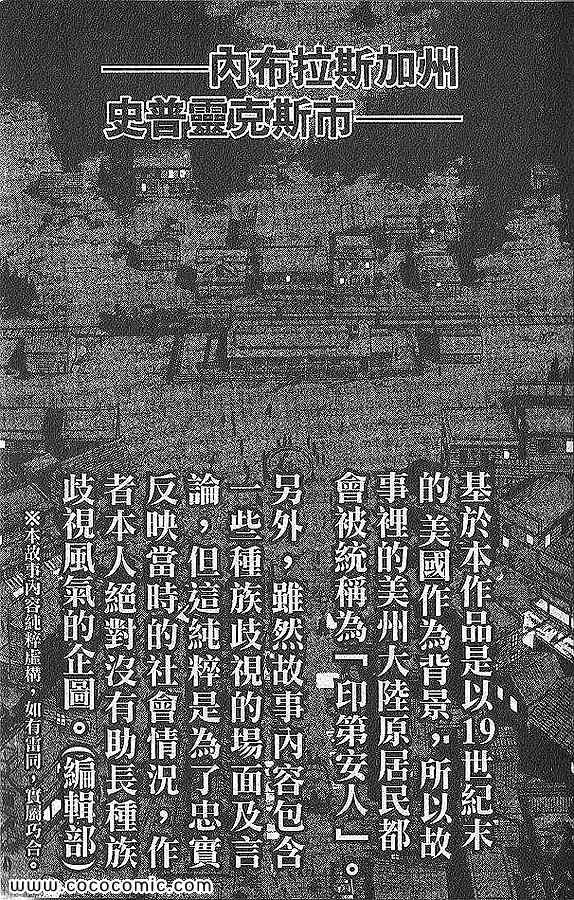 ——內布拉斯加州
史普靈克斯市——
基於本作品是以19世紀末
的美國作為背景，所以故
事裡的美州大陸原居民都
會被統稱為「印第安人」。
另外，雖然故事內容包含
一些種族歧視的場面及言
論，但這純粹是為了忠實
反映當時的社會情況，作
者本人絕對沒有助長種族
歧視風氣的企圖。（編輯部）
※本故事內容純粹虛構，如有雷同，實屬巧合。
www.cococomic.com